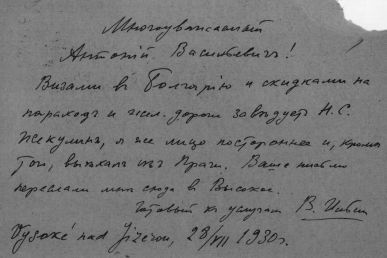 Многоуважаемый
Антоній Васильевичъ!
Визами въ Болгарію и скидками на
пароходъ и жел. дороги завѣдуетъ Н.С.
Жекулинъ, я же лицо постороннее и, кромѣ
того, выѣхалъ изъ Праги. Ваше письмо
переслали мнѣ сюда въ Высокое.
Готовый къ услугамъ В.
Vysoké nad Jizerou, 28/VII 1930г.